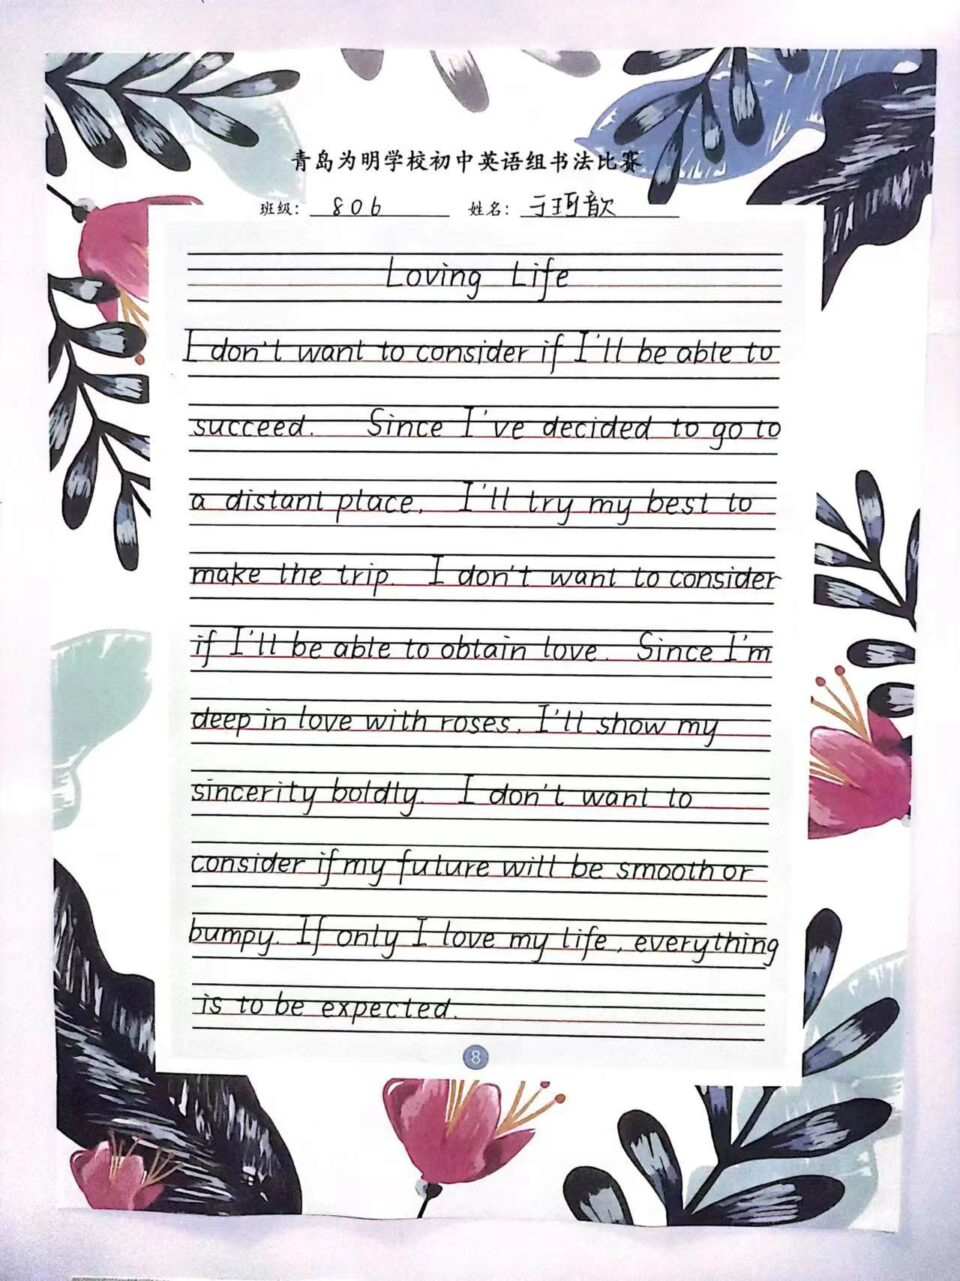 青岛为明学校初中英语组书法比赛
班级: 806 姓名: 于珂歆
Loving Life
I don't want to consider if I'll be able to
succeed. Since I've decided to go to
a distant place, I'll try my best to
make the trip. I don't want to consider
if I'll be able to obtain love. Since I'm
deep in love with roses, I'll show my
sincerity boldly. I don't want to
consider if my future will be smooth or
bumpy. If only I love my life, everything
is to be expected.
8